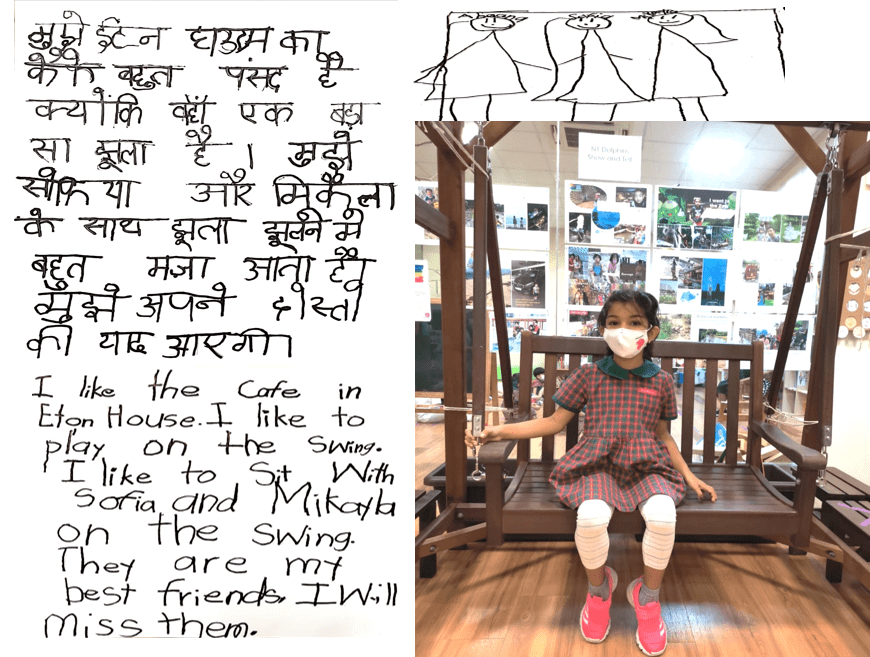 मुझे ईटन हाउस का
कैफे बहुत पंसद है
क्योंकि वहाँ एक बड़ा
सा झूला है ।  मुझे
सोफिया और मिकैला
के साथ झूला झूलने मे
बहुत मजा आता है।
मुझे अपने दोस्तो
की याद आएगी।
I like the Cafe in
Eton House. I like to
play on the swing.
I like to Sit With
Sofia and Mikayla
on the swing.
They are my
best friends. I Will
Miss them.
Sofia
N1 Dolphins
Show and tell